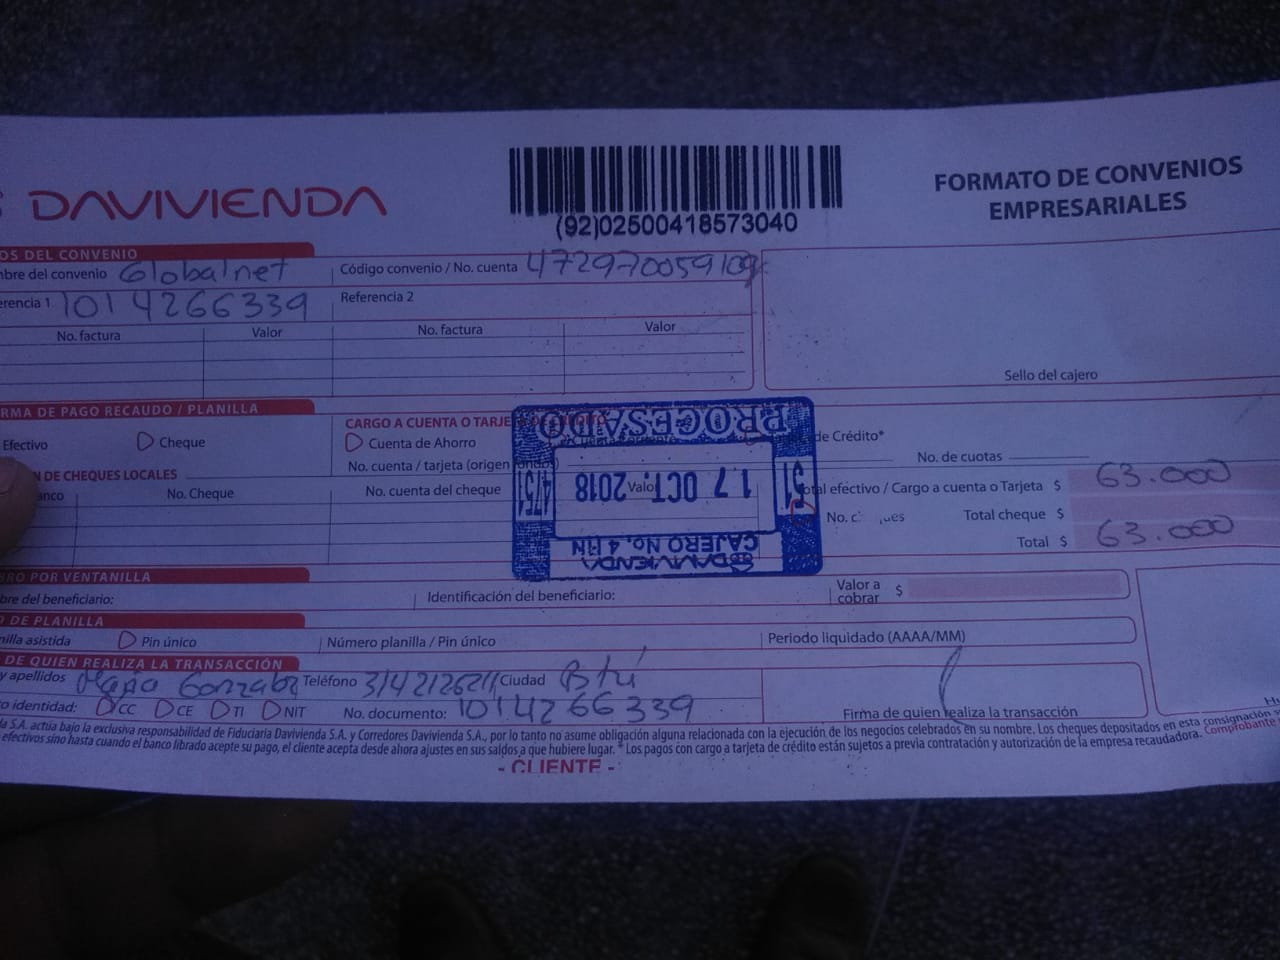 DAVIVIENDA
(92)02500418573040
FORMATO DE CONVENIOS
EMPRESARIALES
OS DEL CONVENIO
bre del convenio Globalnet
Código convenio / No. cuenta
erencia 1 1014266339
Referencia 2
No. factura Valor No. factura Valor
Sello del cajero
RMA DE PAGO RECAUDO / PLANILLA
Efectivo Cheque
CARGO A CUENTA O TARJE
Cuenta de Ahorro
de Crédito*
No. cuenta / tarjeta (origen fondos)
No. de cuotas
N DE CHEQUES LOCALES
anco No. Cheque No. cuenta del cheque Valo
PROCESADO
4751 17 OCT. 2018 51
CAJERO No. 4 HN
DAVIVIENDA
otal efectivo / Cargo a cuenta o Tarjeta $ 63.000
No. c ues Total cheque $
Total $ 63.000
RO POR VENTANILLA
bre del beneficiario:
Identificación del beneficiario:
Valor a
cobrar $
O DE PLANILLA
nilla asistida Pin único
Número planilla / Pin único
Periodo liquidado (AAAA/MM)
DE QUIEN REALIZA LA TRANSACCIÓN
y apellidos Teléfono Ciudad Btá
o identidad: CC CE TI NIT No. documento: 1014266339
Firma de quien realiza la transacción
a S.A. actúa bajo la exclusiva responsabilidad de Fiduciaria Davivienda S.A. y Corredores Davivienda S.A., por lo tanto no asume obligación alguna relacionada con la ejecución de los negocios celebrados en su nombre. Los cheques depositados en esta consignación
efectivos sino hasta cuando el banco librado acepte su pago, el cliente acepta desde ahora ajustes en sus saldos a que hubiere lugar. *Los pagos con cargo a tarjeta de crédito están sujetos a previa contratación y autorización de la empresa recaudadora. Comprobante
- CLIENTE -